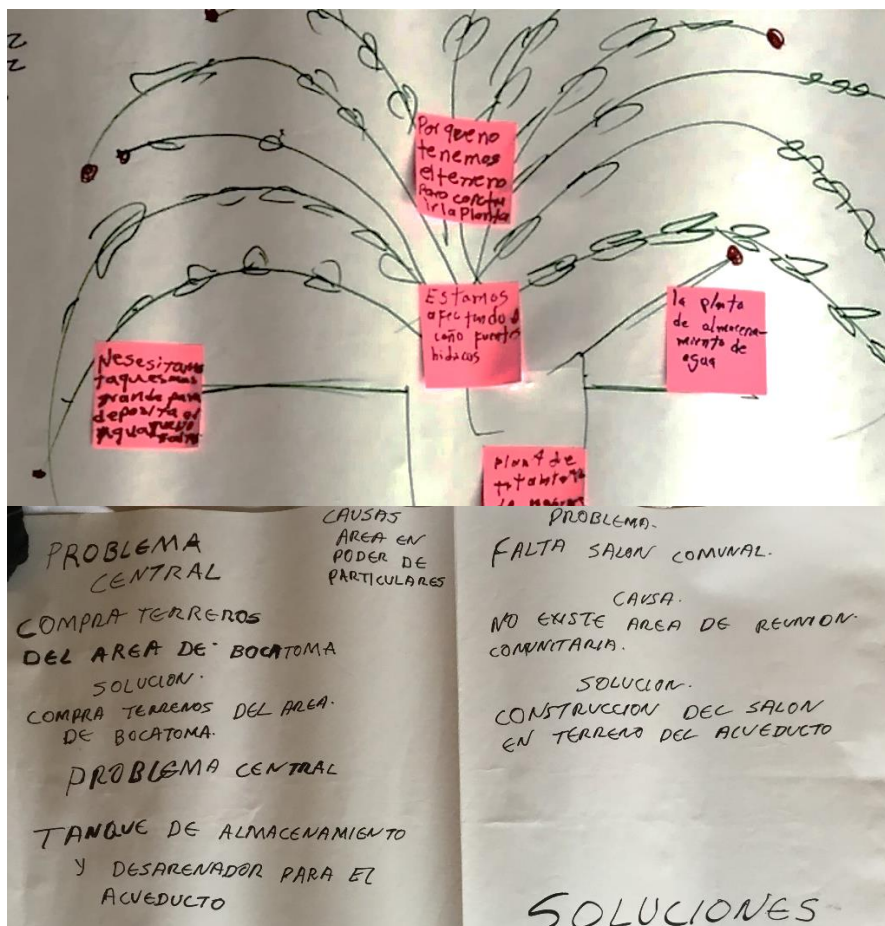 Porque no
tenemos
el terreno
para constru
ir la Planta
Estamos
afectando
caño fuentes
hidicos
la plnta
de almacena-
miento de
agua
Nesesitamos
taques mas
grande para
deposita el
Agua
Plant de
PROBLEMA
CENTRAL
CAUSAS
AREA EN
PODER DE
PARTICULARES
COMPRA TERREROS
DEL AREA DE BOCATOMA
SOLUCION.
COMPRA TERRENOS DEL AREA.
DE BOCATOMA.
PROBLEMA CENTRAL
TANQUE DE ALMACENAMIENTO
Y DESARENADOR PARA EL
ACUEDUCTO
PROBLEMA.
FALTA SALON COMUNAL.
CAUSA.
NO EXISTE AREA DE REUNION.
COMUNITARIA.
SOLUCION.
CONSTRUCCION DEL SALON
EN TERRENO DEL ACUEDUCTO
SOLUCIONES